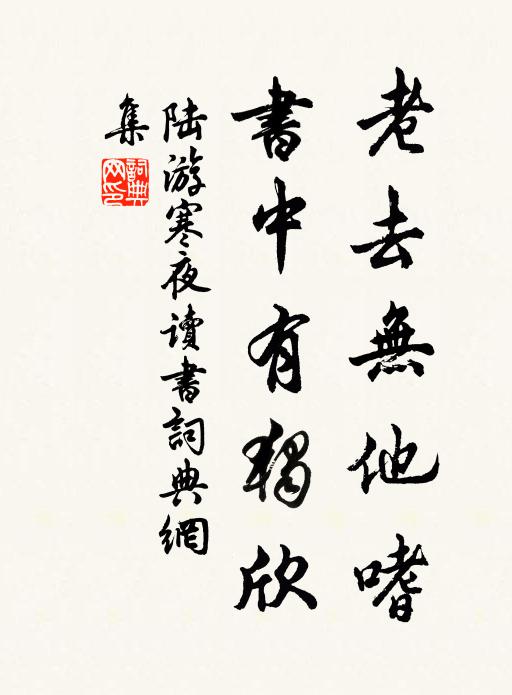 老去無他嗜
書中有獨欣
陸游寒夜讀書詞典網
集
詞典
网印